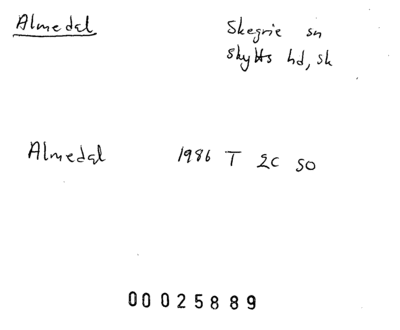 Almedal
Skegrie sn
Skytts hd, sk
Almedal 1986 T 2C SO
00025889